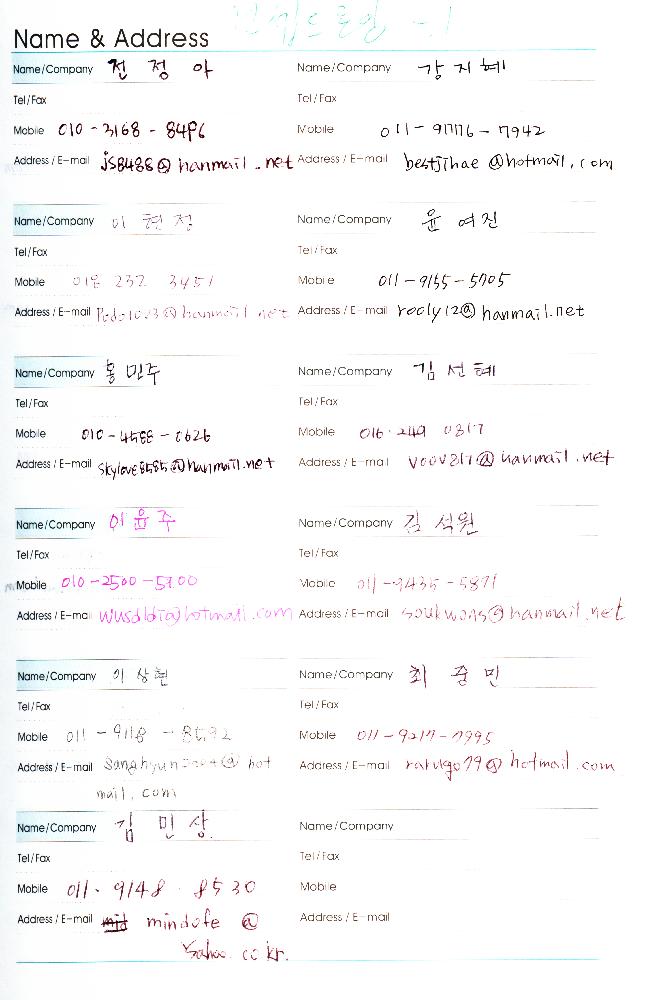 Name & Address
Name/Company 전 정 아
Tel/Fax
Mobile 010 - 3168 - 8486
Address / E-mail js8486@hanmail.net
Name/Company 강 지 혜
Tel/Fax
Mobile 011 - 9776 - 7942
Address / E-mail bestjihae@hotmail.com
Name/Company 이 현 정
Tel/Fax
Mobile 018 232 3451
Address / E-mail @hanmail.net
Name/Company 윤 여진
Tel/Fax
Mobile 011 - 9155 - 5705
Address / E-mail rooly12@hanmail.net
Name/Company 홍 민주
Tel/Fax
Mobile 010 - 4588 - 0626
Address / E-mail skylove8585@hanmail.net
Name/Company 김 선 혜
Tel/Fax
Mobile 016 · 249 0817
Address / E-mail voov817@hanmail.net
Name/Company 이 윤 주
Tel/Fax
Mobile 010 - 2500 -
Address / E-mail @hotmail.com
Name/Company 김 석원
Tel/Fax
Mobile 011 - 9435 - 5871
Address / E-mail soukwons@hanmail.net
Name/Company 이 상현
Tel/Fax
Mobile 011 - 9118 - 8592
Address / E-mail @hot
mail.com
Name/Company 최 준 민
Tel/Fax
Mobile 011 - 9217 - 7995
Address / E-mail rarugo79@hotmail.com
Name/Company 김 민 상
Tel/Fax
Mobile 011 - 9148 · 8530
Address / E-mail mindofe @
Yahoo.co.kr.
Name/Company
Tel/Fax
Mobile
Address / E-mail